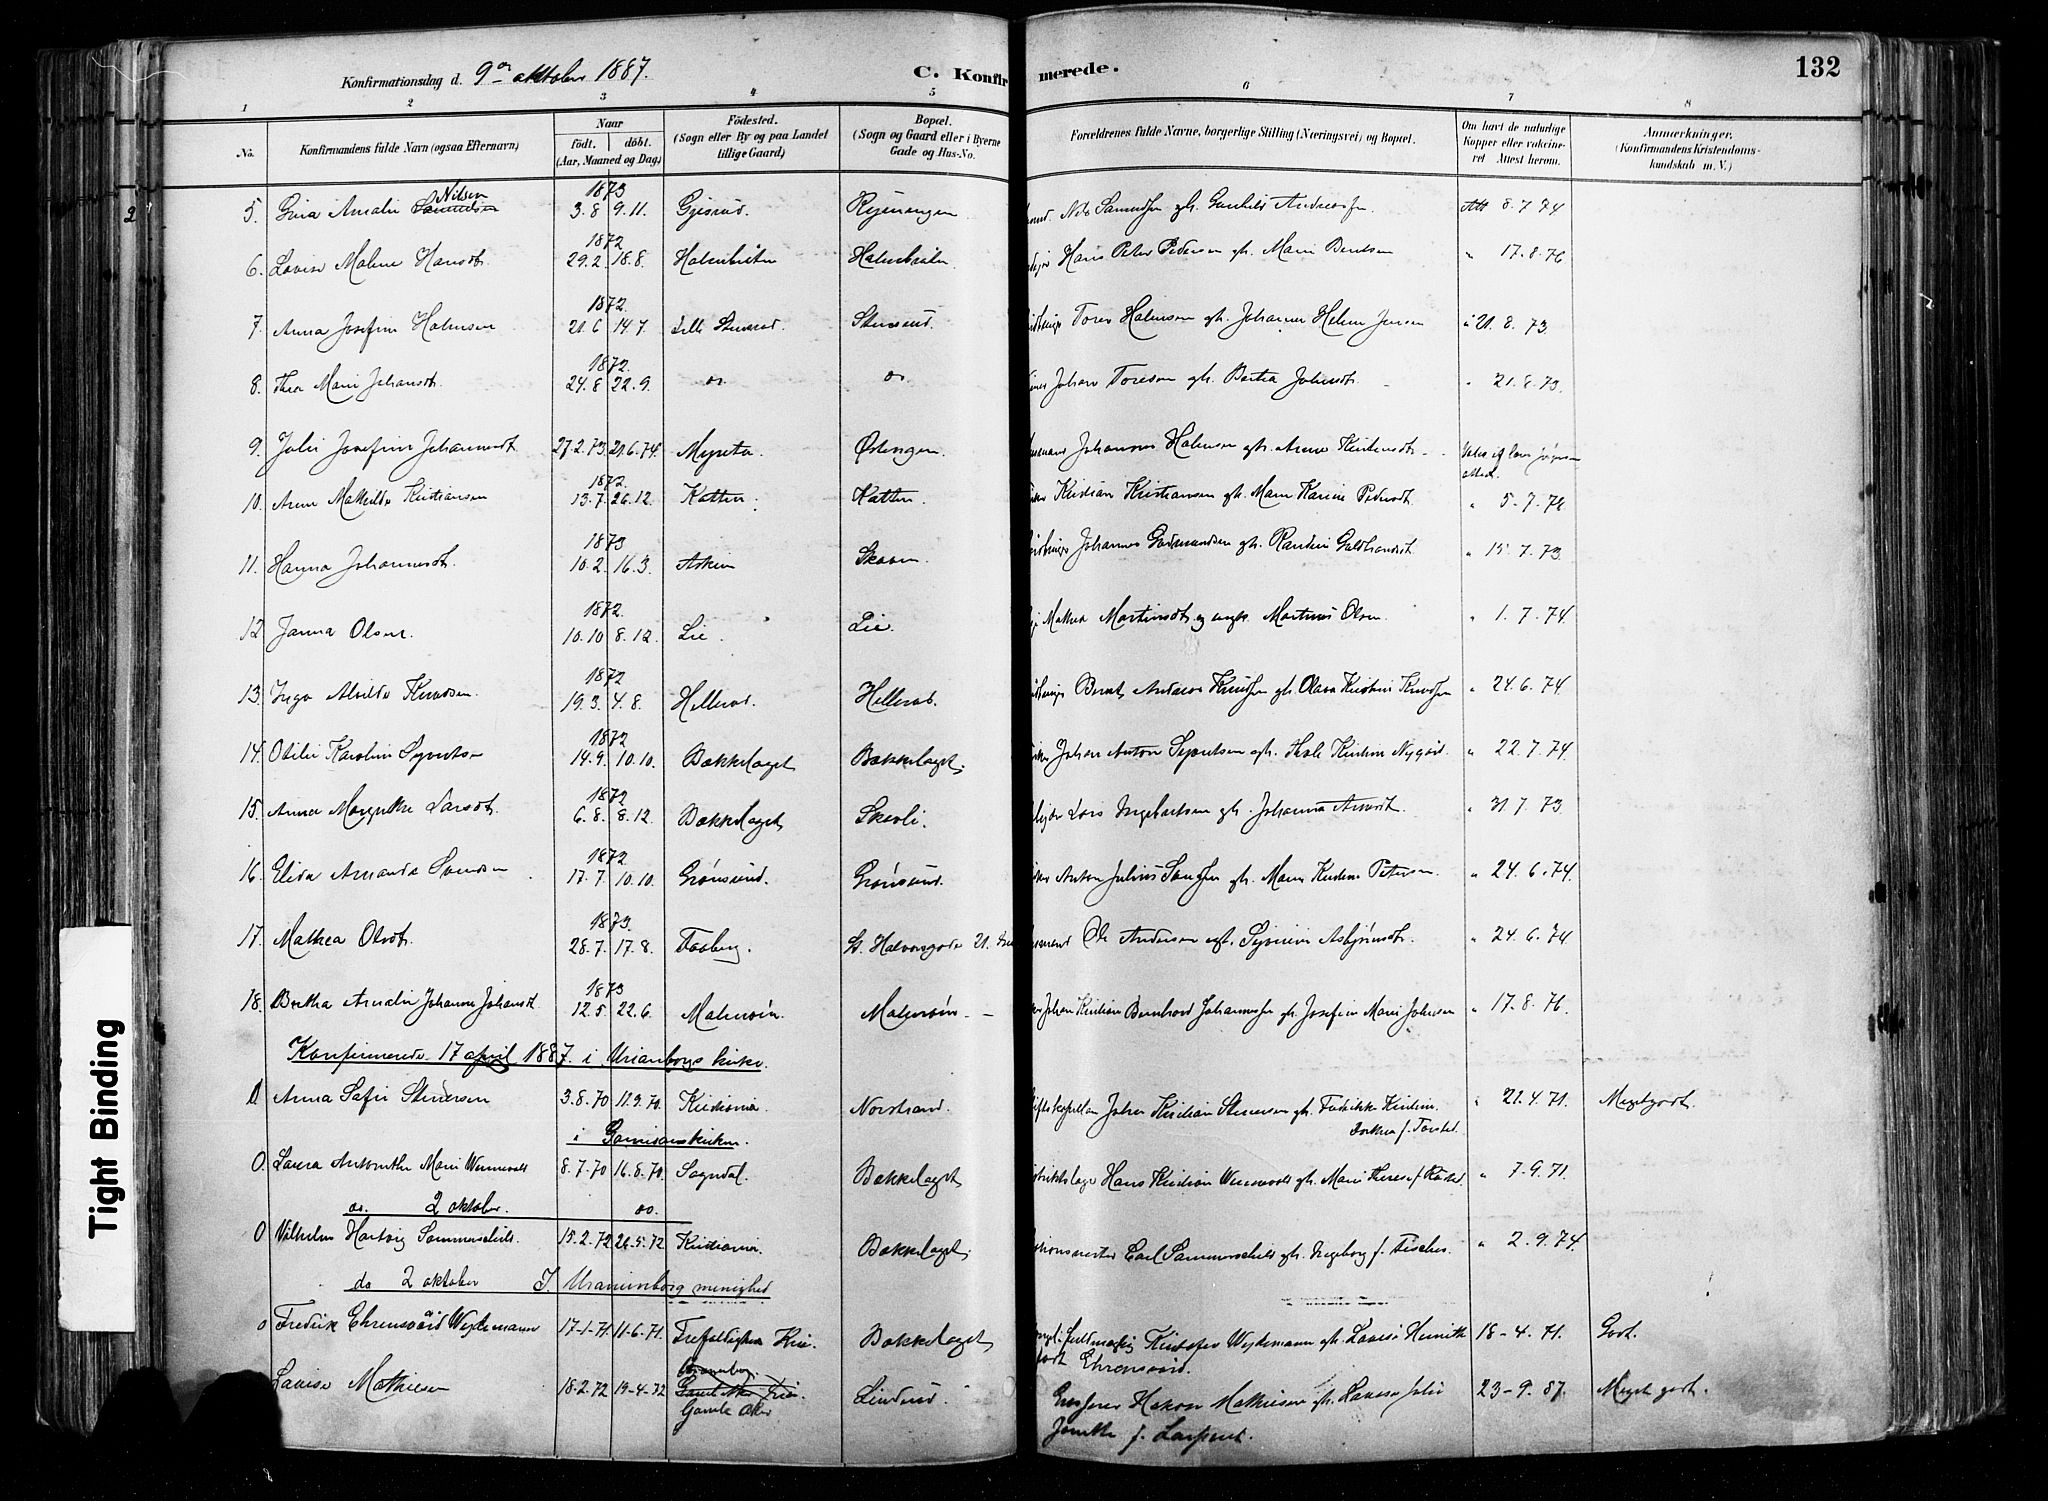 Konfirmationsdag d. 9de oktober 1887.
C. Konfirmerede.
132
1 2 3 4 5 6 7 8
No.
Konfirmandens fulde Navn (ogsaa Efternavn)
Naar
født. døbt.
(Aar, Maaned og Dag)
Fødested.
(Sogn eller By og paa Landet
tillige Gaard)
Bopæl.
(Sogn og Gaard eller i Byerne
Gade og Hus-No.
Forældrenes fulde Navne, borgerlige Stilling (Næringsvei) og Bopæl.
Om havt de naturlige
Kopper eller vakcine-
ret Attest herom.
Anmærkninger,
(Konfirmandens Kristendoms-
kundskab m. V.)
2
Nilsen 1873
5. Gina Amalie Samuelsen 3.8 9.11. Gjesrud. Ryenengen Nils Samuelsen gh. Gunhild Andreassen. Att 8.7.74
1872
6. Lovise Malene Hansdt. 29.2. 18.8. Holmbråten Holmbråten Hans Peter Pedersen gh. Maren Berntsen " 17.8.76
1872.
7. Anna Josefine Halvorsen 21.6 14.7. Lille Stensrud. Stensrud. Tores Halvorsen gh. Johanne Helene Jensen " 21.8.73.
1872.
8. Thea Marie Johansdt. 24.8 22.9. do do Johan Toresen gh. Berthea Johnsdt. " 21.8.73.
9. Julie Josefine Johannesdt 27.2.73. 21.6.74. Myreta Østengen. Johannes Halvorsen gh. Anne Kristensdt.
attest.
1872.
10. Anne Mathilde Kristiansen 13.7. 26.12. Katten. Katten. Kristian Kristiansen gh. Maren Karine Pedersdt. " 5.7.74
1873
11. Hanna Johannesdt. 10.2. 16.3. Askim Skoven. Johannes Gudmundsen gh. Randine Guldbrandsdt " 15.7.73.
1872.
12. Janna Olsen. 10.10 8.12. Lie. Lie. Mathea Martinsdt. og ungk. Martinus Olsen " 1.7.74.
1872
13. Inga Alvilde Knudsen. 19.3. 4.8. Hellerud. Hellerud. Bernt Andreas Knudsen gh. Olava Kristine Knudsen " 24.6.74.
1872
14. Otilie Karoline Syvertsen 14.9. 10.10. Bækkelaget Bækkelaget. Johan Anton Syvertsen gh. Kristine Nygård. " 22.7.74.
1872
15. Anna Margrethe Larsdt. 6.8. 8.12. Bækkelaget Skovli. Lars Ingebretsen gh. Johanna Arnesdt. " 31.7.73
1872
16. Elida Amanda Svendsen 17.7. 10.10. Grønsund. Grønsund. Anton Julius Svendsen gh. Maren Kristine Petersen. " 24.6.74.
1873.
17. Mathea Olsdt. 28.7. 17.8. Faaberg. St. Halvorsgade 21. Ole Andersen gh. Syverine Asbjørnsdt. " 24.6.74
1873
18. Berthea Amalie Johanne Johansdt 12.5 22.6. Malmøen. Malmøen. Johan Kristian Bernhard Johannessen gh. Josefine Marie Johnsen " 17.8.76.
Konfirmerede 17 april 1887. i Uranienborgs kirke.
Anna Sofie Stenersen 3.8.70 11.9.70. Kristiania. Norstrand Johan Kristian Stenersen gh. Fredrikke Kristine " 21.4.71. Megetgodt.
Dorthea f. Torsted.
i Garnisonskirken.
0. Laura Antonette Marie Wennevold 8.7.70 16.8.70. Sogndal. Bækkelaget Hans Kristian Wennevold gh. Marie Therese f. " 7.9.71.
do. 2 oktober. do.
0 Vilhelm Hartvig Sommerschild. 15.2.72 26.5.72 Kristiania. Bækkelaget. Carl Sommerschild gh. Ingeborg f. Fischer. " 2.9.74.
do 2 oktober I Uranienborg menighed
0 Fredrik Ehrensvärd Weidemann 17-1-71. 11-6-71. Trefoldighed Kria. Bækkelaget Kristofer Weidemann gh. Lovise Henriette 18-4.71. Godt.
født Ehrensvärd.
Lovise Mathiesen 18.2.72 19-4-72 Gamle Aker Kria. Lindrud. Haakon Mathiesen gh. Lovise Julie 23-9.87. Meget godt.
Gamle Aker
Janette f. Larpent.
Tight Binding